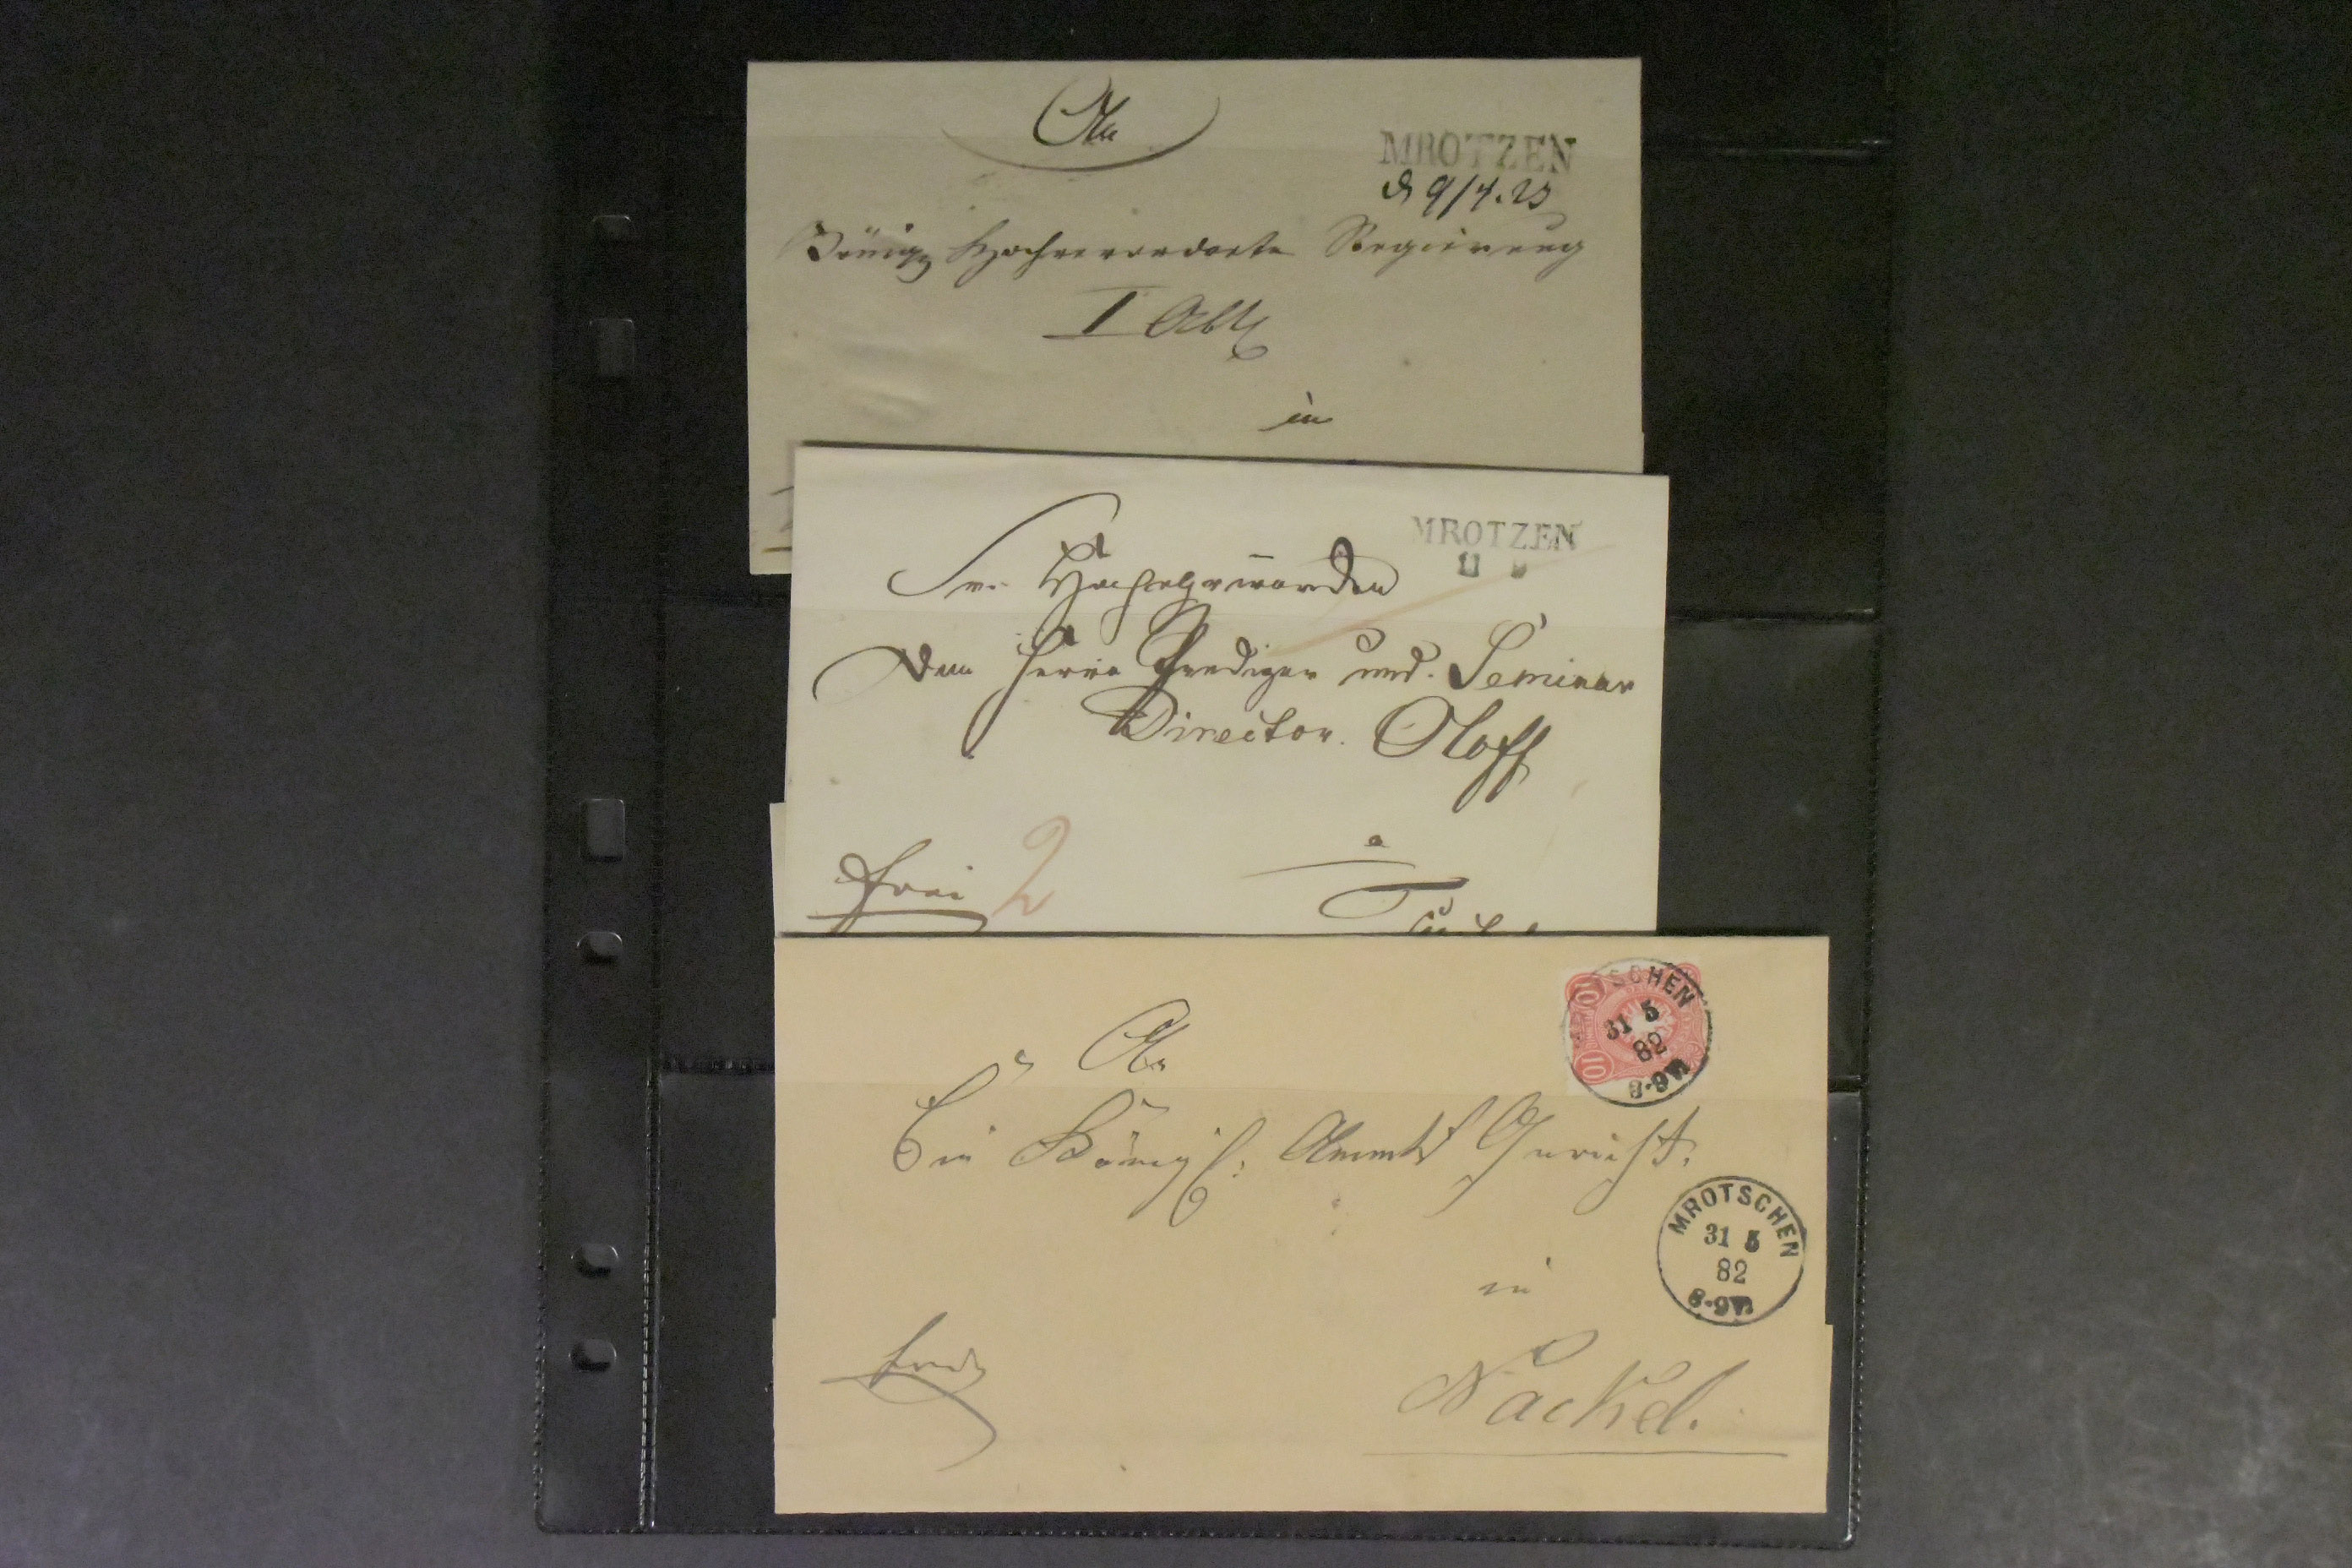 An
MROTZEN
d 9/4. 25
Königl Hochverordnete Regierung
I Abth
in
MROTZEN
11
Sr. Hochehrwürden
dem Herrn Prediger und Seminar
Director. Oloff
a
frei 2
MROTSCHEN
31 5
82
8-9 V
10
10
An
Ein Königl: Ammts Gericht.
MROTSCHEN
31 5
82
8-9 V
in
Nackel.